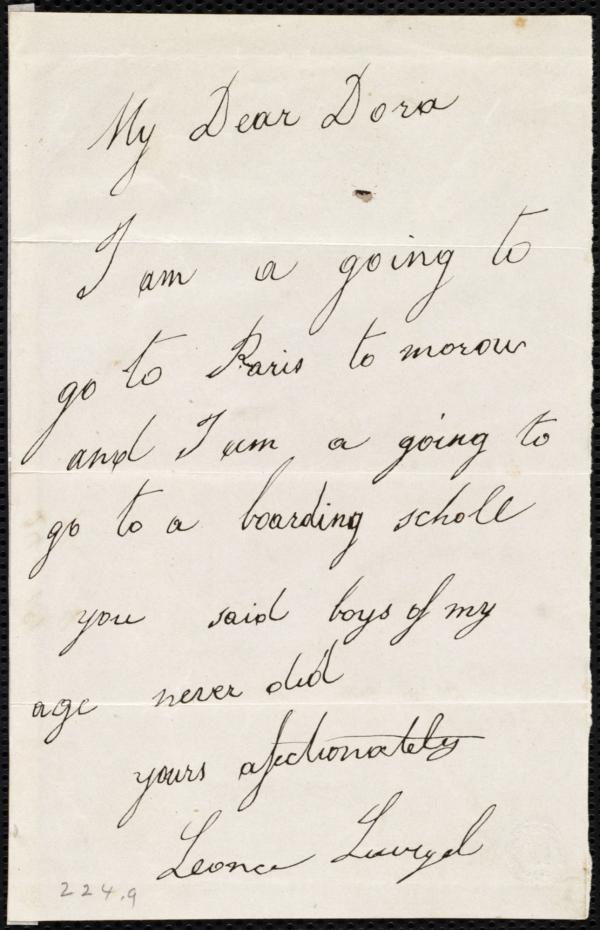 My Dear Dora
I am a going to
go to Paris to morow
and I am a going to
go to a boarding scholl
you said boys of my
age never did
yours afectionately
Leonce
224.9